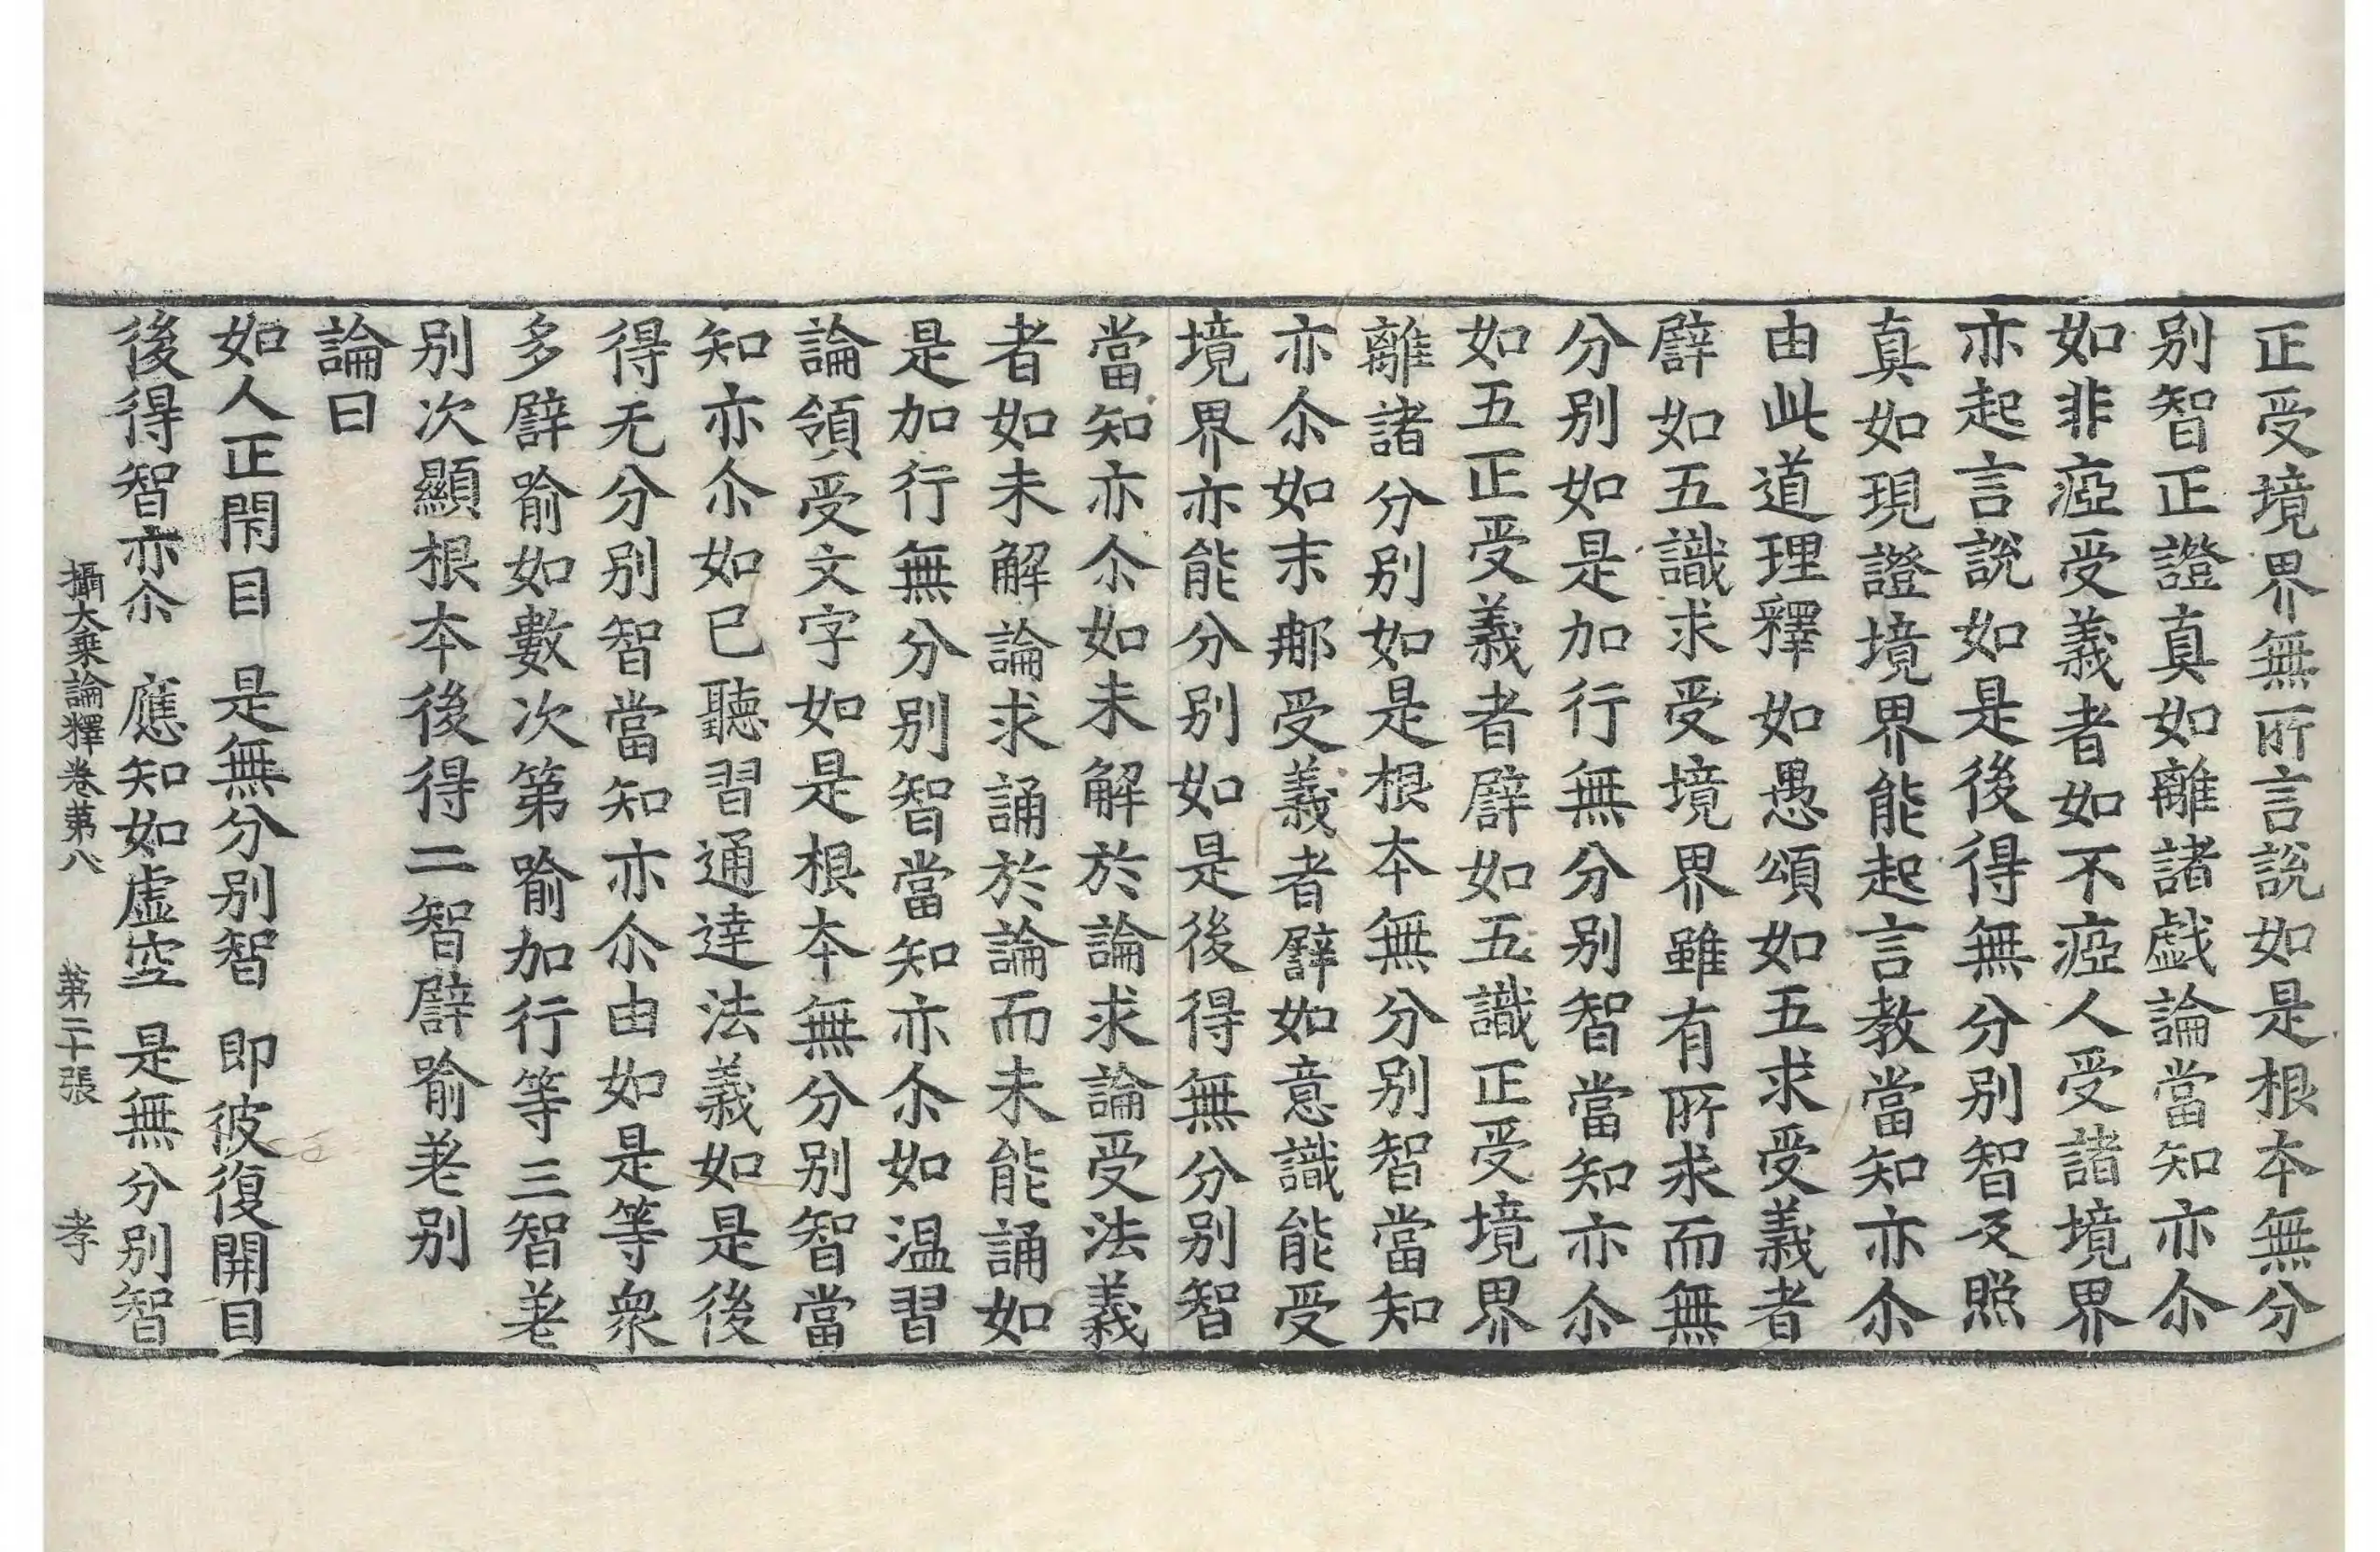 正受境界無所言說如是根本無分
别智正證真如離諸戱論當知亦尒
如非瘂受義者如不瘂人受諸境界
亦起言說如是後得無分别智及照
真如現證境界能起言教當知亦尒
由此道理釋如愚頌如五求受義者
譬如五識求受境界雖有所求而無
分别如是加行無分别智當知亦尒
如五正受義者譬如五識正受境界
離諸分别如是根本無分别智當知
亦尒如末那受義者譬如意識能受
境界亦能分别如是後得無分别智
當知亦尒如未解於論求論受法義
者如未解論求誦於論而未能誦如
是加行無分别智當知亦尒如温習
論領受文字如是根本無分别智當
知亦尒如已聽習通達法義如是後
得无分别智當知亦尒由如是等衆
多譬喻如數次第喻加行等三智差
别次顯根本後得二智譬喻差别
論曰
如人正閇目 是無分别智 即彼復開目
後得智亦尒 應知如虛空 是無分别智
攝大乗論釋卷第八 第二十張 孝